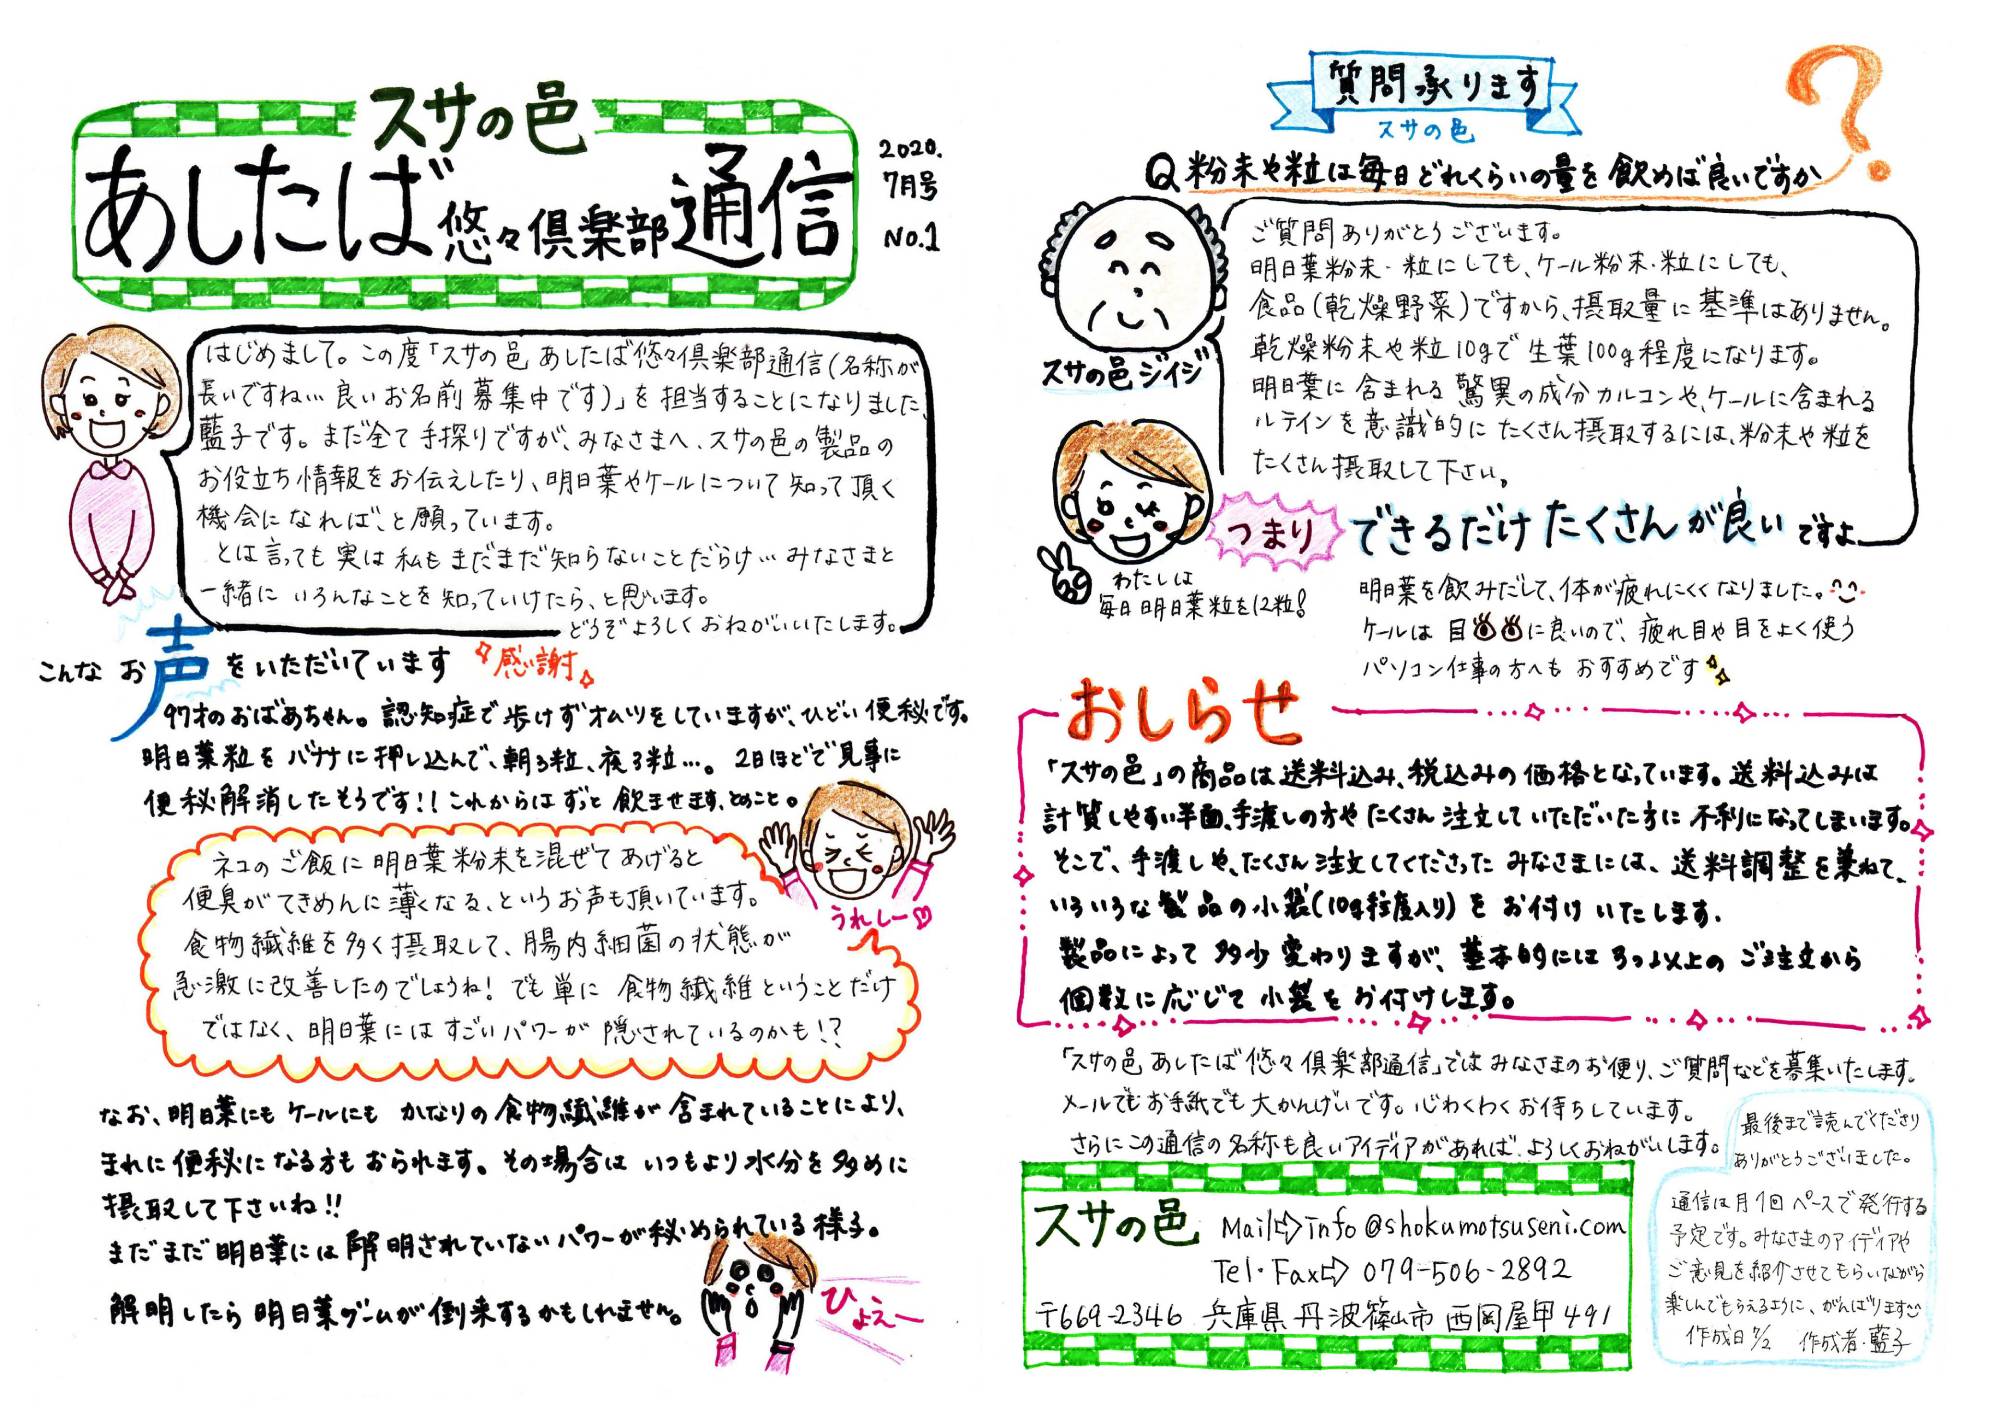 スサの邑
あしたば悠々倶楽部通信
2020.
7月号
No.1
はじめまして。この度「スサの邑 あしたば悠々倶楽部通信(名称が
長いですね…良いお名前募集中です)」を担当することになりました、
藍子です。まだ全て手探りですが、みなさまへ、スサの邑の製品の
お役立ち情報をお伝えしたり、明日葉やケールについて知って頂く
機会になれば、と願っています。
とは言っても実は私もまだまだ知らないことだらけ…みなさまと
一緒にいろんなことを知っていけたら、と思います。
どうぞよろしくおねがいいたします。
こんなお声をいただいています 感謝
97才のおばあちゃん。認知症で歩けずオムツをしていますが、ひどい便秘です。
明日葉粒をバナナに押し込んで、朝3粒、夜3粒…。2日ほどで見事に
便秘解消したそうです!!これからはずっと飲ませます、とのこと。
ネコのご飯に明日葉粉末を混ぜてあげると
便臭がてきめんに薄くなる、というお声も頂いています。
食物繊維を多く摂取して、腸内細菌の状態が
急激に改善したのでしょうね!でも単に食物繊維ということだけ
ではなく、明日葉にはすごいパワーが隠されているのかも!?
うれしー♡
なお、明日葉にもケールにもかなりの食物繊維が含まれていることにより、
まれに便秘になる方もおられます。その場合はいつもより水分を多めに
摂取して下さいね!!
まだまだ明日葉には解明されていないパワーが秘められている様子。
解明したら明日葉ブームが到来するかもしれません。
ひょえー
質問承ります
スサの邑
?
Q 粉末や粒は毎日どれくらいの量を飲めば良いですか
ご質問ありがとうございます。
明日葉粉末・粒にしても、ケール粉末・粒にしても、
食品(乾燥野菜)ですから、摂取量に基準はありません。
乾燥粉末や粒10gで生葉100g程度になります。
明日葉に含まれる驚異の成分カルコンや、ケールに含まれる
ルテインを意識的にたくさん摂取するには、粉末や粒を
たくさん摂取して下さい。
スサの邑ジイジ
つまり できるだけたくさんが良いですよ
わたしは
毎日明日葉粒を12粒!
明日葉を飲みだして、体が疲れにくくなりました。
ケールは目に良いので、疲れ目や目をよく使う
パソコン仕事の方へもおすすめです
おしらせ
「スサの邑」の商品は送料込み、税込みの価格となっています。送料込みは
計算しやすい半面、手渡しの方やたくさん注文していただいた方に不利になってしまいます。
そこで、手渡しや、たくさん注文してくださったみなさまには、送料調整を兼ねて、
いろいろな製品の小袋(10g程度入り)をお付けいたします.
製品によって多少変わりますが、基本的には3つ以上のご注文から
個数に応じて小袋をお付けします。
「スサの邑 あしたば悠々倶楽部通信」ではみなさまのお便り、ご質問などを募集いたします。
メールでもお手紙でも大かんげいです。心わくわくお待ちしています。
さらにこの通信の名称も良いアイディアがあれば、よろしくおねがいします。
スサの邑 Mail⇨info@shokumotsuseni.com
Tel・Fax⇨079-506-2892
〒669-2346 兵庫県丹波篠山市西岡屋甲491
最後まで読んでくださり
ありがとうございました。
通信は月1回ペースで発行する
予定です。みなさまのアイディアや
ご意見を紹介させてもらいながら
楽しんでもらえるように、がんばります
作成日7/2 作成者・藍子